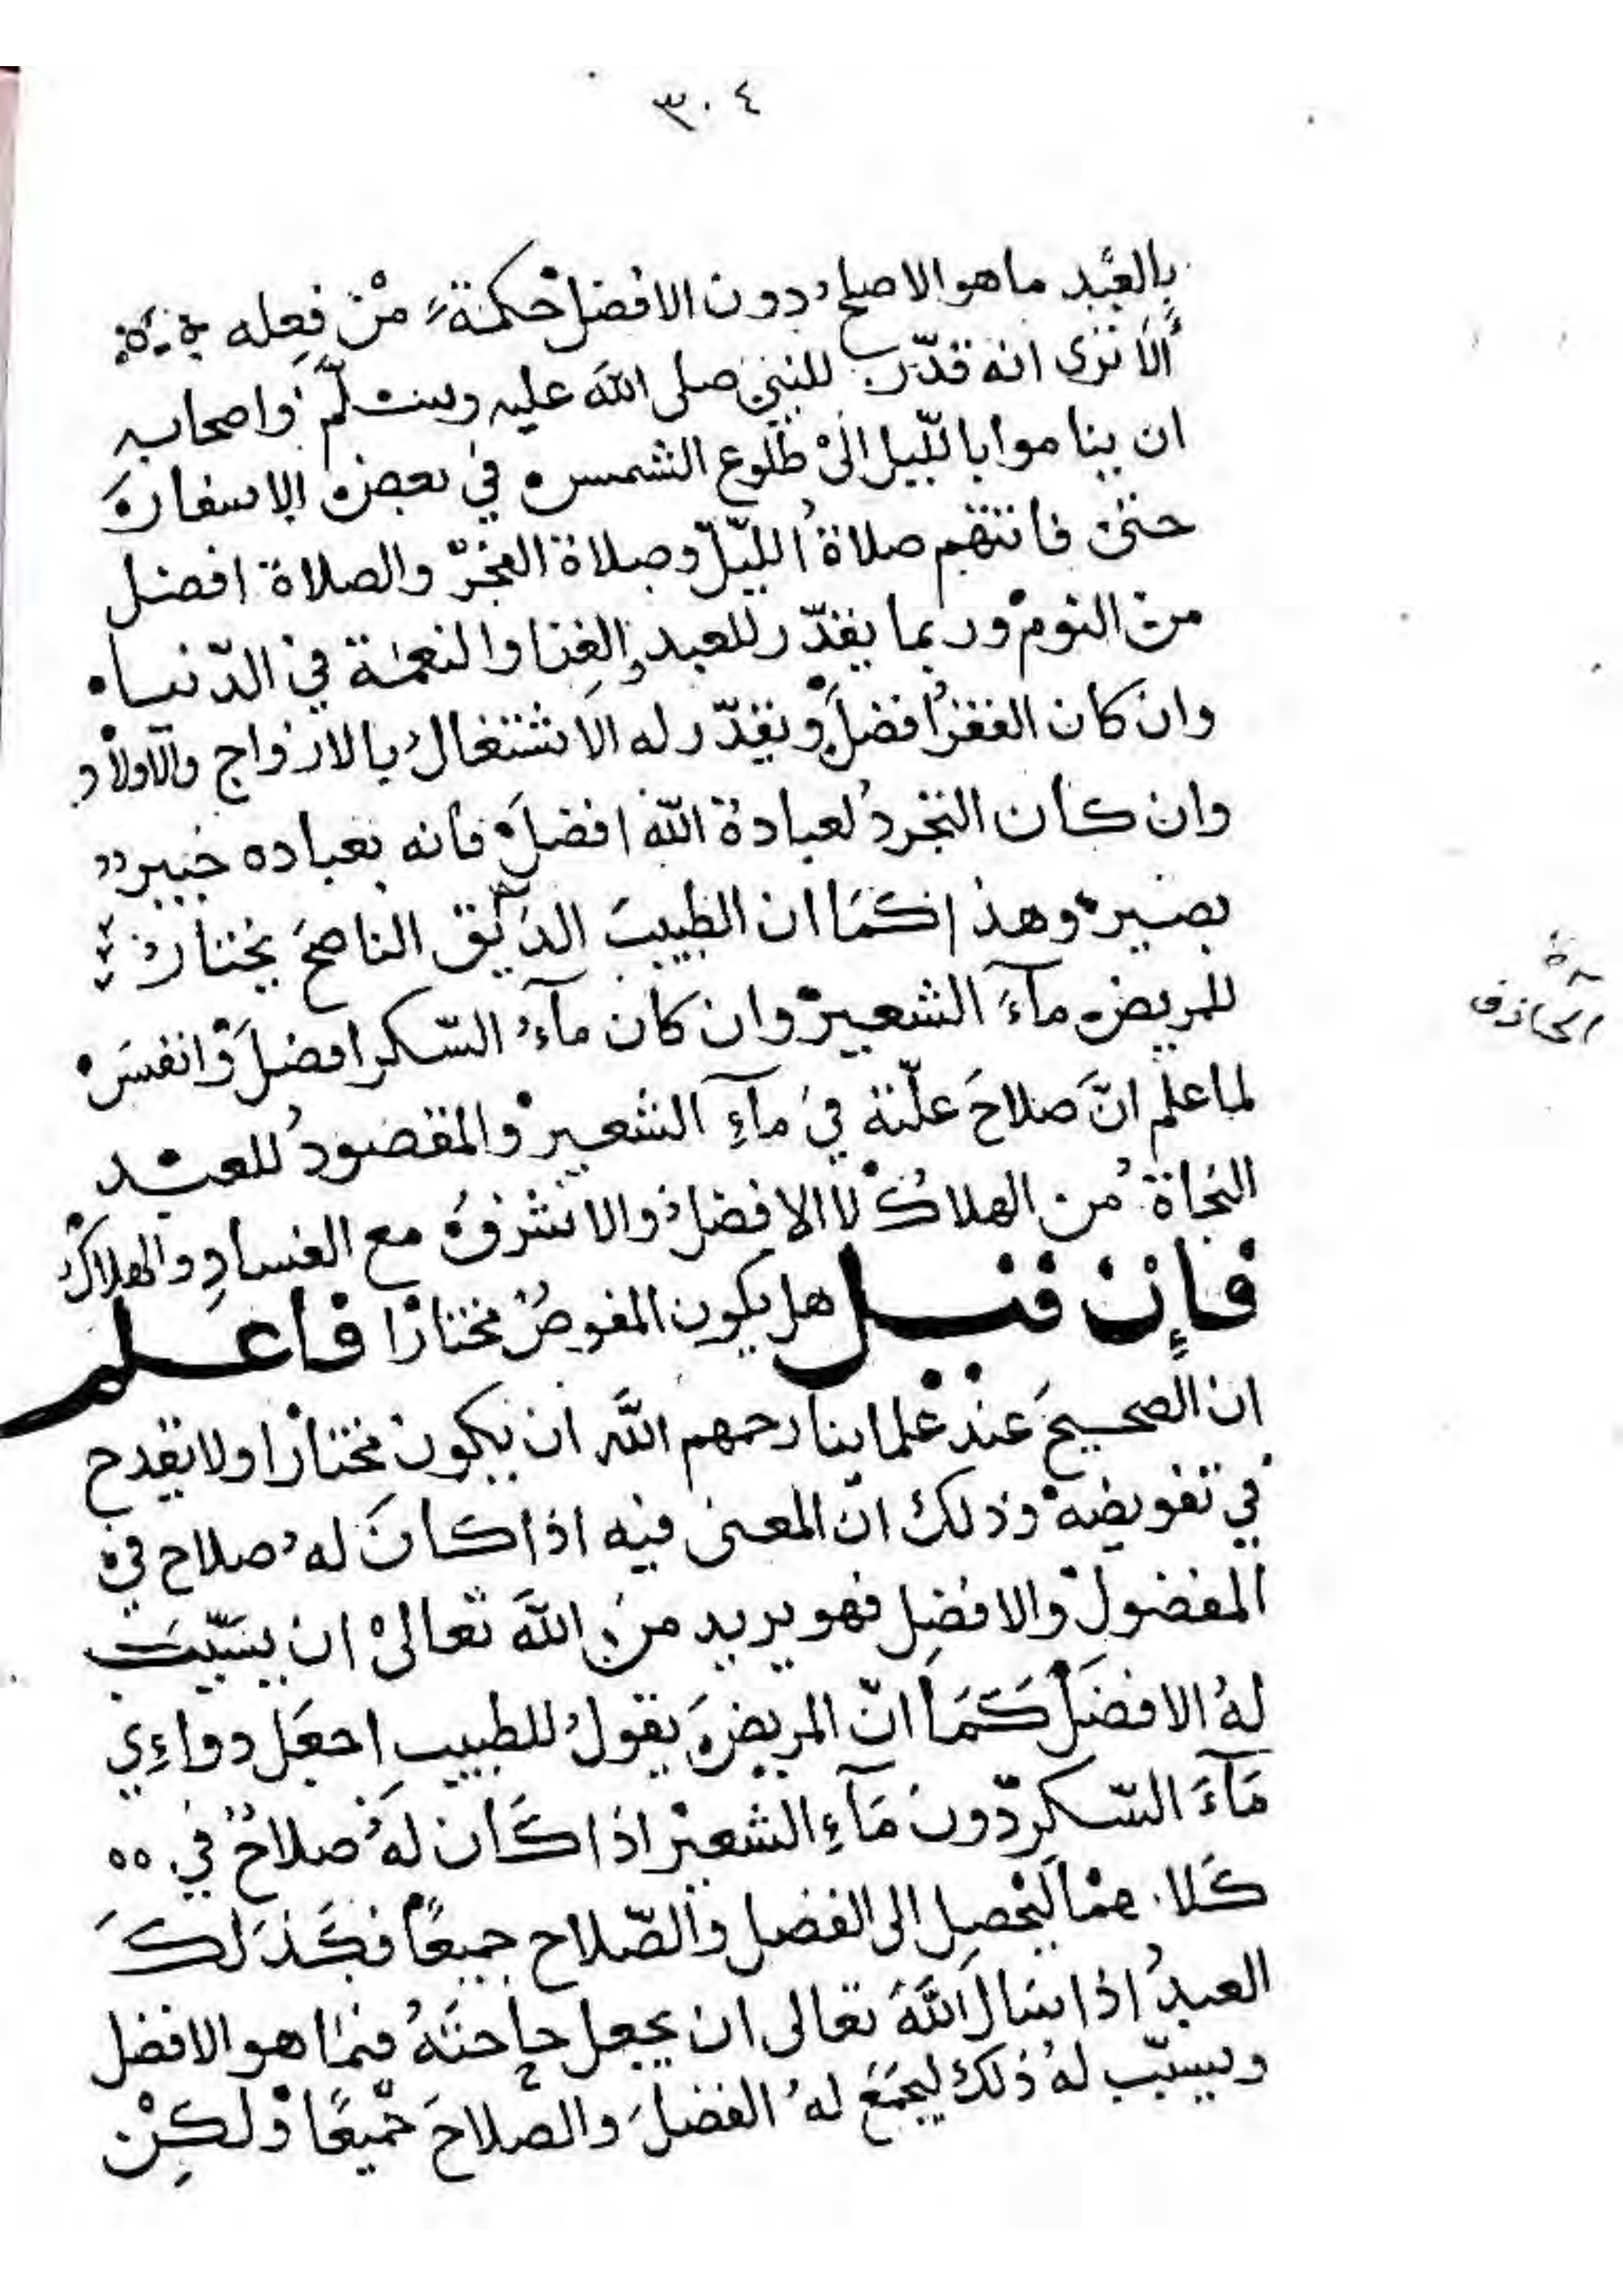 ٣٠٤
بِالعبد ما هو الاصلح دون الافضل حكمة من فعله
ألا ترى انه قدّر للنبي صلى الله عليه وسلّم واصحابه
ان يناموا بالليل الى طلوع الشمس في بعض الاسفار
حتى فاتتهم صلاة الليل وصلاة الفجر والصلاة افضل
من النوم وربما يقدّر للعبد الغنا والنعمة في الدّنيا
وان كان الفقر افضل ويقدّر له الاشتغال بالازواج والاولاد
وان كان التجرد لعبادة الله افضل فانه بعباده خبير
بصير وهذا كما ان الطبيب الناصح يختار
للمريض مآء الشعير وان كان مآء السّكر افضل وانفس
لما علم انّ صلاح علّته في مآء الشعير والمقصود للعبد
النجاة من الهلاك لا الافضل والاشرف مع الفساد والهلاك
فإن قيل هل يكون المفوض مختارا فاعلم
ان الصحيح عند علماينا رحمهم الله ان يكون مختارا ولا يقدح
في تفويضه وذلك انّ المعنى فيه اذا كان له صلاح في
المفضول والافضل فهو يريد من الله تعالى ان يسبّب
له الافضل كما انّ المريض يقول للطبيب اجعل دواءي
مآء السّكر دون مآء الشعير اذا كان له صلاح في
كلاهما ليحصل الى الفضل والصّلاح جميعًا فكذلك
العبد اذا سال الله تعالى ان يجعل حاجته فيما هو الافضل
ويسبّب له ذلك ليجمع له الفضل والصّلاح جميعًا ولكن
الحاذق